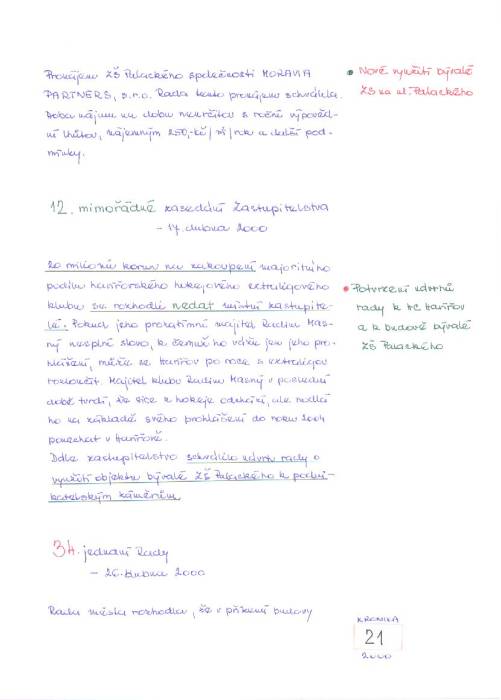 Pronájem ZŠ Palackého společnosti MORAVIA
PARTNERS, s.r.o. Rada tento pronájem schválila.
Doba nájmu na dobu neurčitou s roční výpověd-
ní lhůtou, nájemným 250,-Kč/m²/rok a další pod-
mínky.
• Nové využití bývalé
ZŠ na ul. Palackého
12. mimořádné zasedání Zastupitelstva
- 17. dubna 2000
20 milionů korun na zakoupení majoritního
podílu havířovského hokejového extraligového
klubu se rozhodli nedat místní zastupite-
lé. Pokud jeho prozatímní majitel Radim Mas-
ný nesplní slovo, k čemuž ho váže jen jeho pro-
hlášení, může se Havířov po roce s extraligou
rozloučit. Majitel klubu Radim Masný v poslední
době tvrdí, že sice z hokeje odchází, ale hodlá
ho na základě svého prohlášení do roku 2004
ponechat v Havířově.
Dále zastupitelstvo schválilo návrh rady o
využití objektu bývalé ZŠ Palackého k podni-
katelským záměrům.
• Potvrzení návrhů
rady k HC Havířov
a k budově bývalé
ZŠ Palackého
34. jednání Rady
- 26. dubna 2000
Rada města rozhodla, že v přízemí budovy
KRONIKA
21
2000